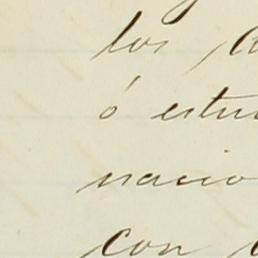 los
ó estu
nacio
con